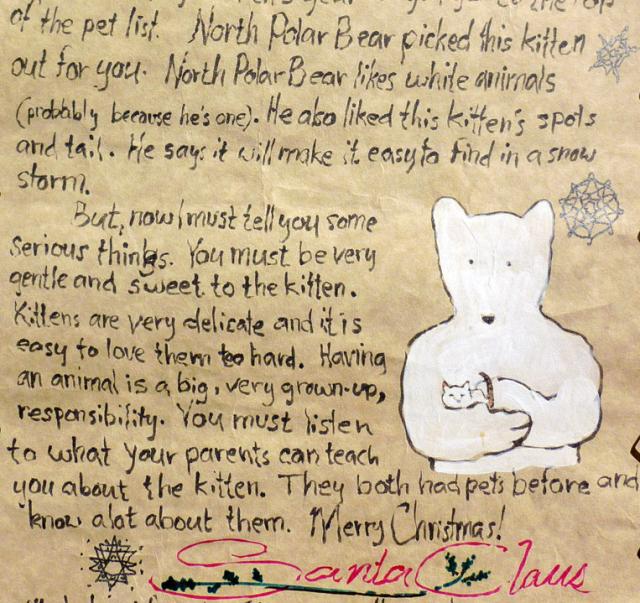 of the pet list. North Polar Bear picked this kitten
out for you. North Polar Bear likes white animals
(probably because he's one). He also liked this kitten's spots
and tail. He says it will make it easy to find in a snow
storm.
But, now I must tell you some
serious things. You must be very
gentle and sweet to the kitten.
Kittens are very delicate and it is
easy to love them too hard. Having
an animal is a big, very grown-up,
responsibility. You must listen
to what your parents can teach
you about the kitten. They both had pets before and
know alot about them. Merry Christmas!
Santa Claus